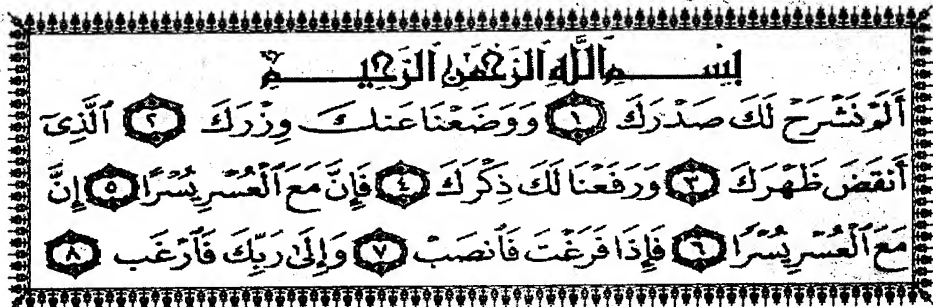 بِسْمِ اللَّهِ الرَّحْمَٰنِ الرَّحِيمِ
أَلَمْ نَشْرَحْ لَكَ صَدْرَكَ ١ وَوَضَعْنَا عَنكَ وِزْرَكَ ٢ ٱلَّذِىٓ
أَنقَضَ ظَهْرَكَ ٣ وَرَفَعْنَا لَكَ ذِكْرَكَ ٤ فَإِنَّ مَعَ ٱلْعُسْرِ يُسْرًا ٥ إِنَّ
مَعَ ٱلْعُسْرِ يُسْرًا ٦ فَإِذَا فَرَغْتَ فَٱنصَبْ ٧ وَإِلَىٰ رَبِّكَ فَٱرْغَب ٨